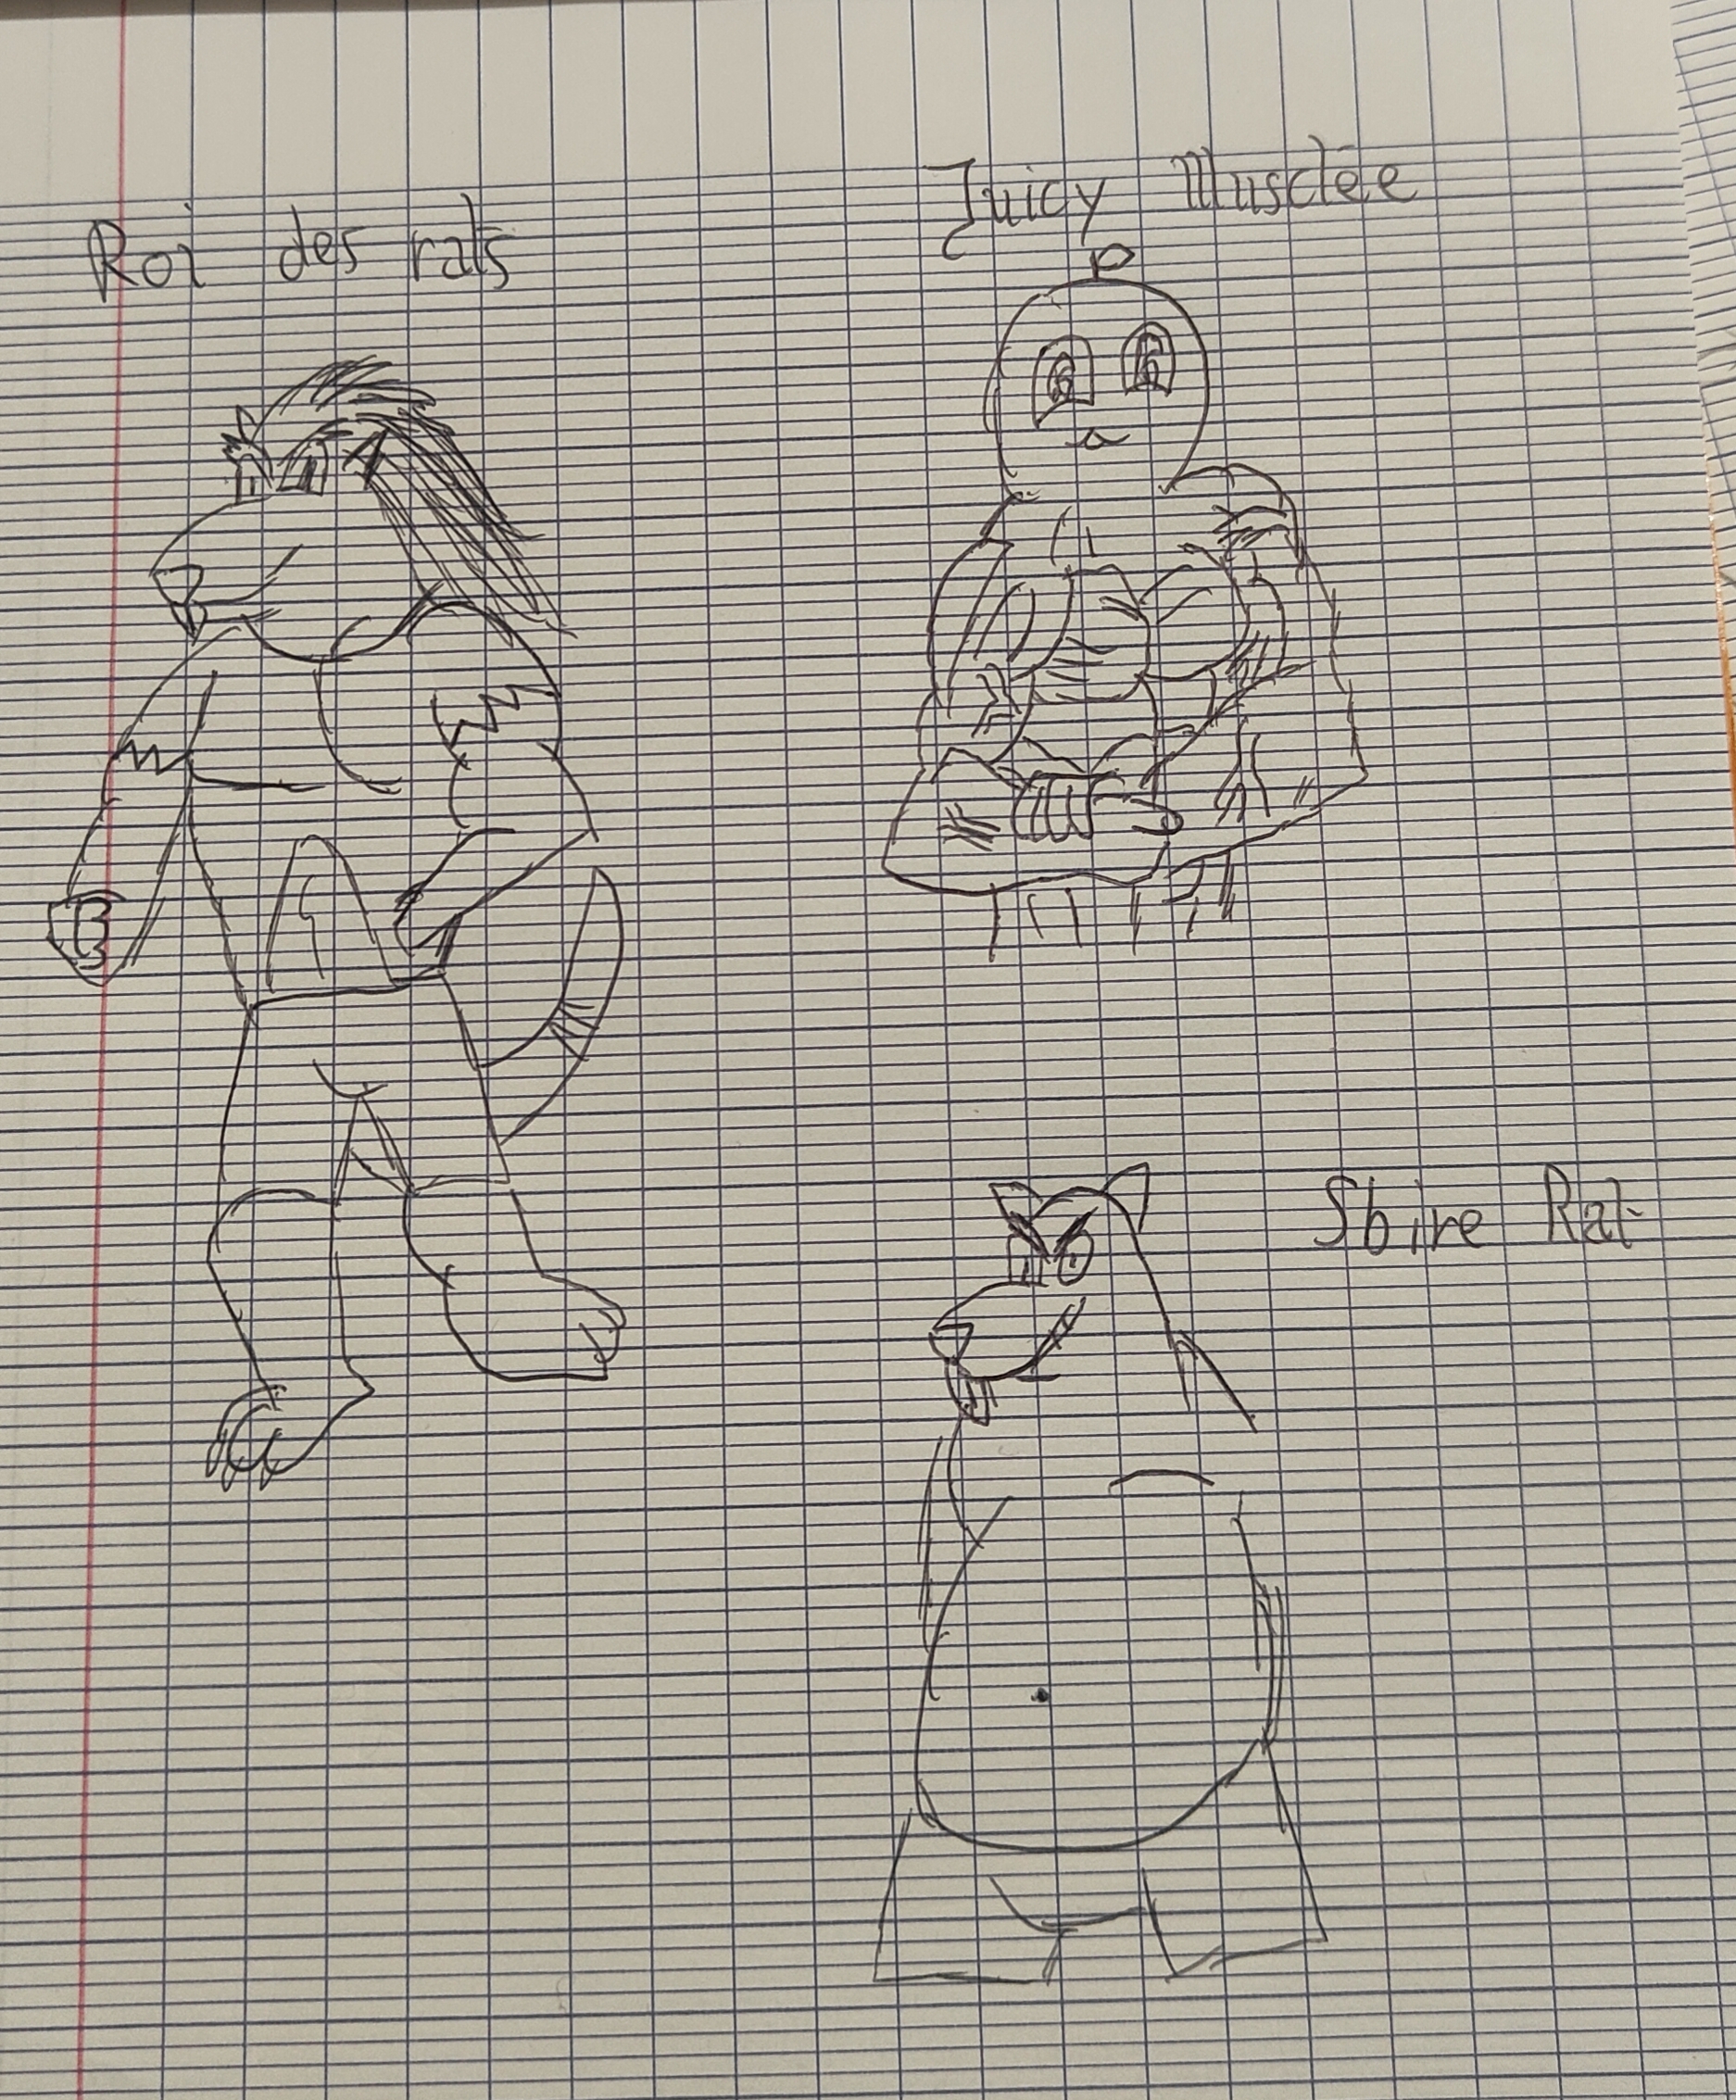 Roi des rats
Juicy Musclée
Sbire Rat